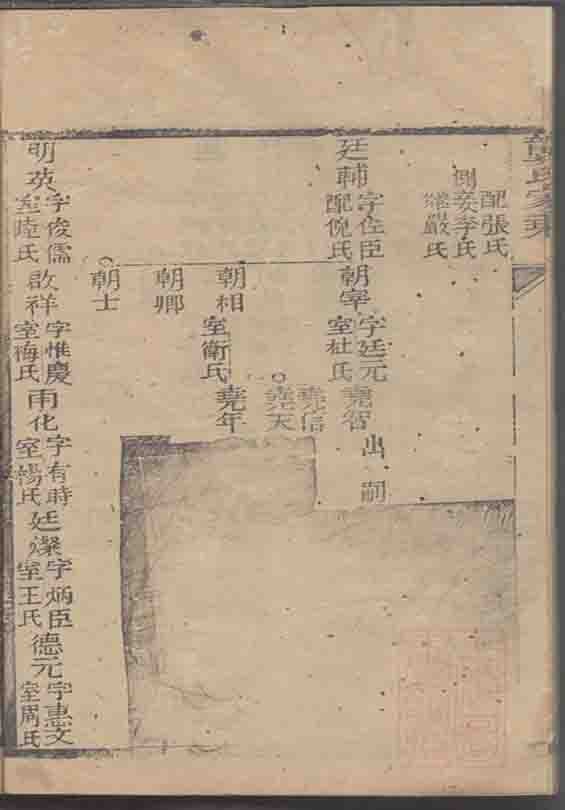 氏家乘
配張氏
側妾李氏
繼嚴氏
廷輔
字佐臣
配倪氏
朝宰
字廷元
室杜氏
堯智
出嗣
堯信
堯天
朝相
室衛氏
堯年
朝卿
朝士
明英
字俊儒
室陸氏
啟祥
字惟慶
室梅氏
雨化
字有時
室楊氏
廷燦
字炳臣
室王氏
德元
字惠文
室周氏